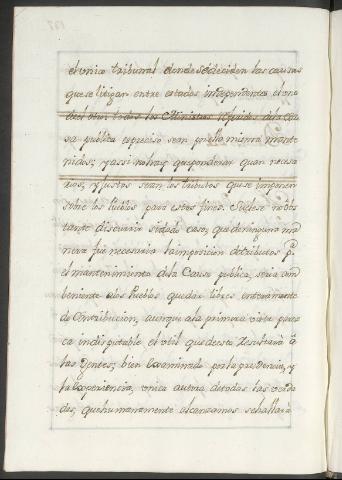 el unico tribunal donde sedeciden las causas
quese litigan entre estados independentes el uno
del otro todos los Ministros
sa publica es preciso sean por ella misma mante
nidos; y assi no hay que ponderar quan necesa
rios; y justos sean los tributos que se imponen
sobre los Pueblos para estos fines. Supuesto no obs
tante discurrir si dado caso, que de ninguna ma
nera fue necesaria la imposicion de tributos pª
el mantenimiento dela Causa publica, seria con
beniente alos Pueblos quedar libres enteramente
de Contribucion, aunque ala primera vista parez
ca indisputable el util que de esta resultaria â
las Gentes; bien examinado por la prudencia, y
la experiencia, unica autora de todas las verda
des, que humanamente alcanzamos se hallará